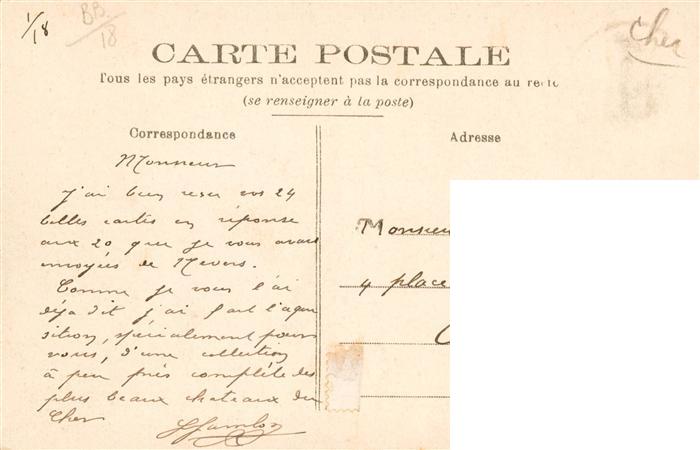 1/18
BB.
18
Cher
CARTE POSTALE
Tous les pays étrangers n'acceptent pas la correspondance au recto
(se renseigner à la poste)
Correspondance
Adresse
Monsieur
J'ai bien reçu vos 24
belles cartes en réponse
aux 20 que je vous avais
envoyées de Nevers.
Comme je vous l'ai
déja dit j'ai fait l'aqui
sition, spécialement pour
vous, d'une collection
à peu près complète des
plus beaux chateaux du
Cher
Monsieur
4 place